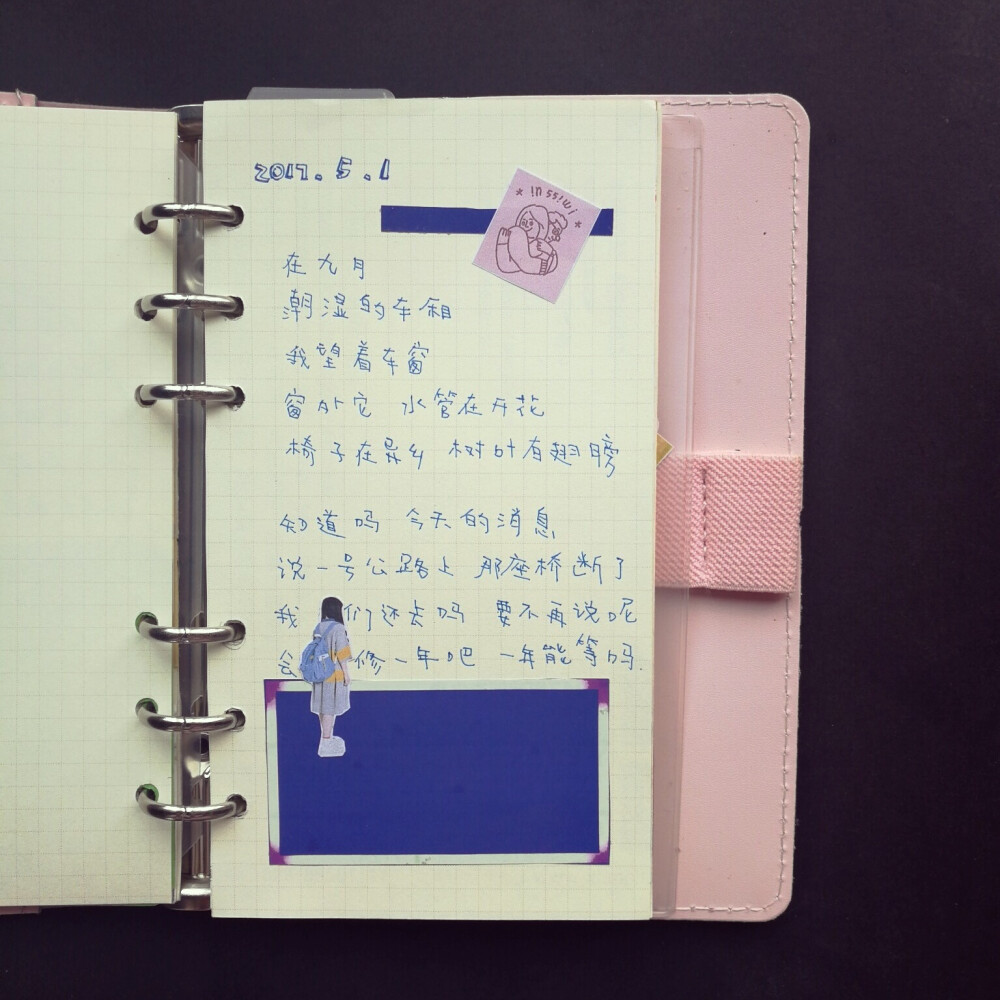 2017.5.1
in ssiwi
在九月
潮湿的车厢
我望着车窗
窗外它 水管在开花
椅子在异乡 树叶有翅膀
知道吗 今天的消息
说一号公路上 那座桥断了
我们还去吗 要不再说呢
会修一年吧 一年能等吗.